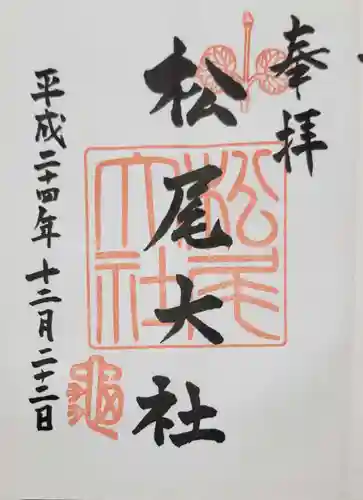 奉拝
松尾大社
平成二十四年十二月二十三日
松尾大社